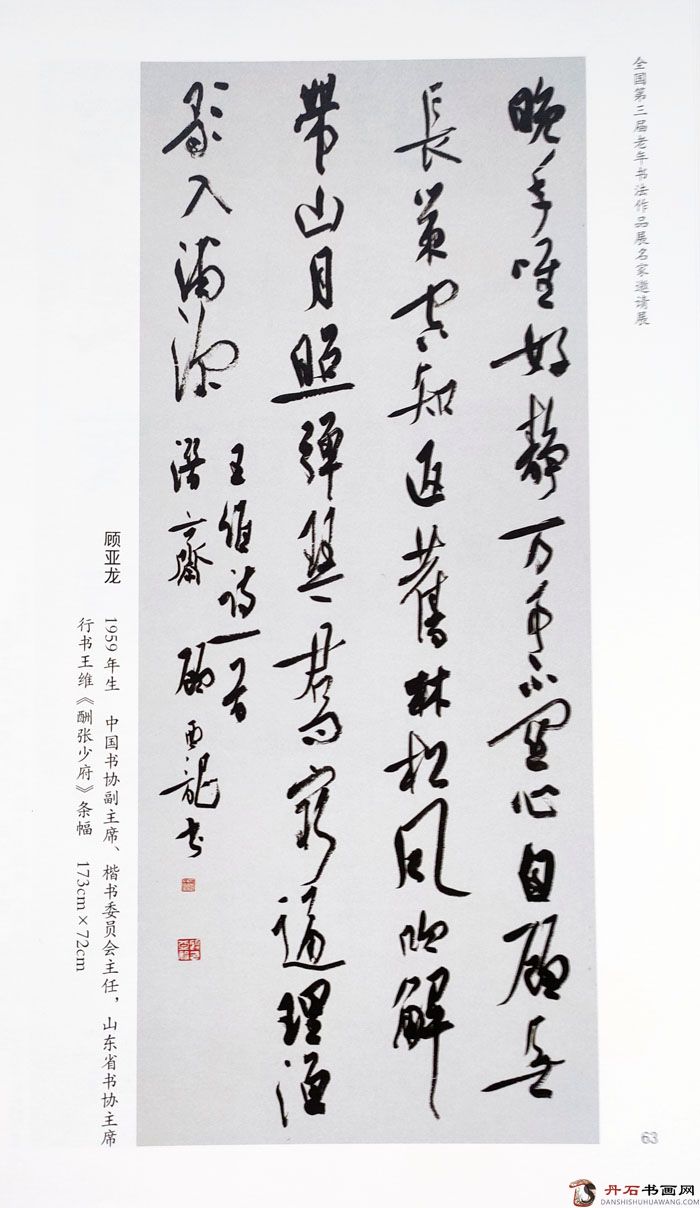 全国第三届老年书法作品展名家邀请展
晚年唯好静万事不關心自顧無
長策空知返舊林松風吹解
帶山月照彈琴君問窮通理漁
歌入浦深
王維詩一首
齋 顧亞龍書
顾亚龙 1959年生 中国书协副主席、楷书委员会主任，山东省书协主席
行书王维《酬张少府》条幅 173cm×72cm
63
丹石书画网
DANSHISHUHUAWANG.COM